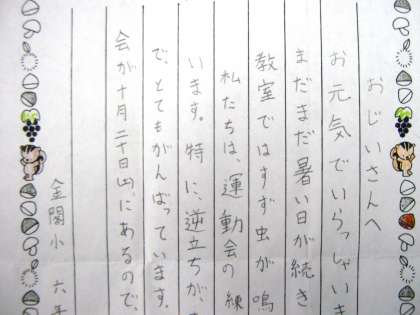 おじいさんへ
お元気でいらっしゃいま
まだまだ暑い日が続き
教室ではすず虫が鳴
私たちは、運動会の練
います。特に、逆立ちが、
で、とてもがんばっています。
会が十月二十日(土)にあるので、
金閣小 六年